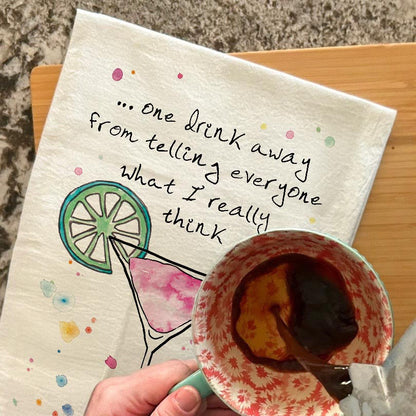 ... one drink away
from telling everyone
what I really
think